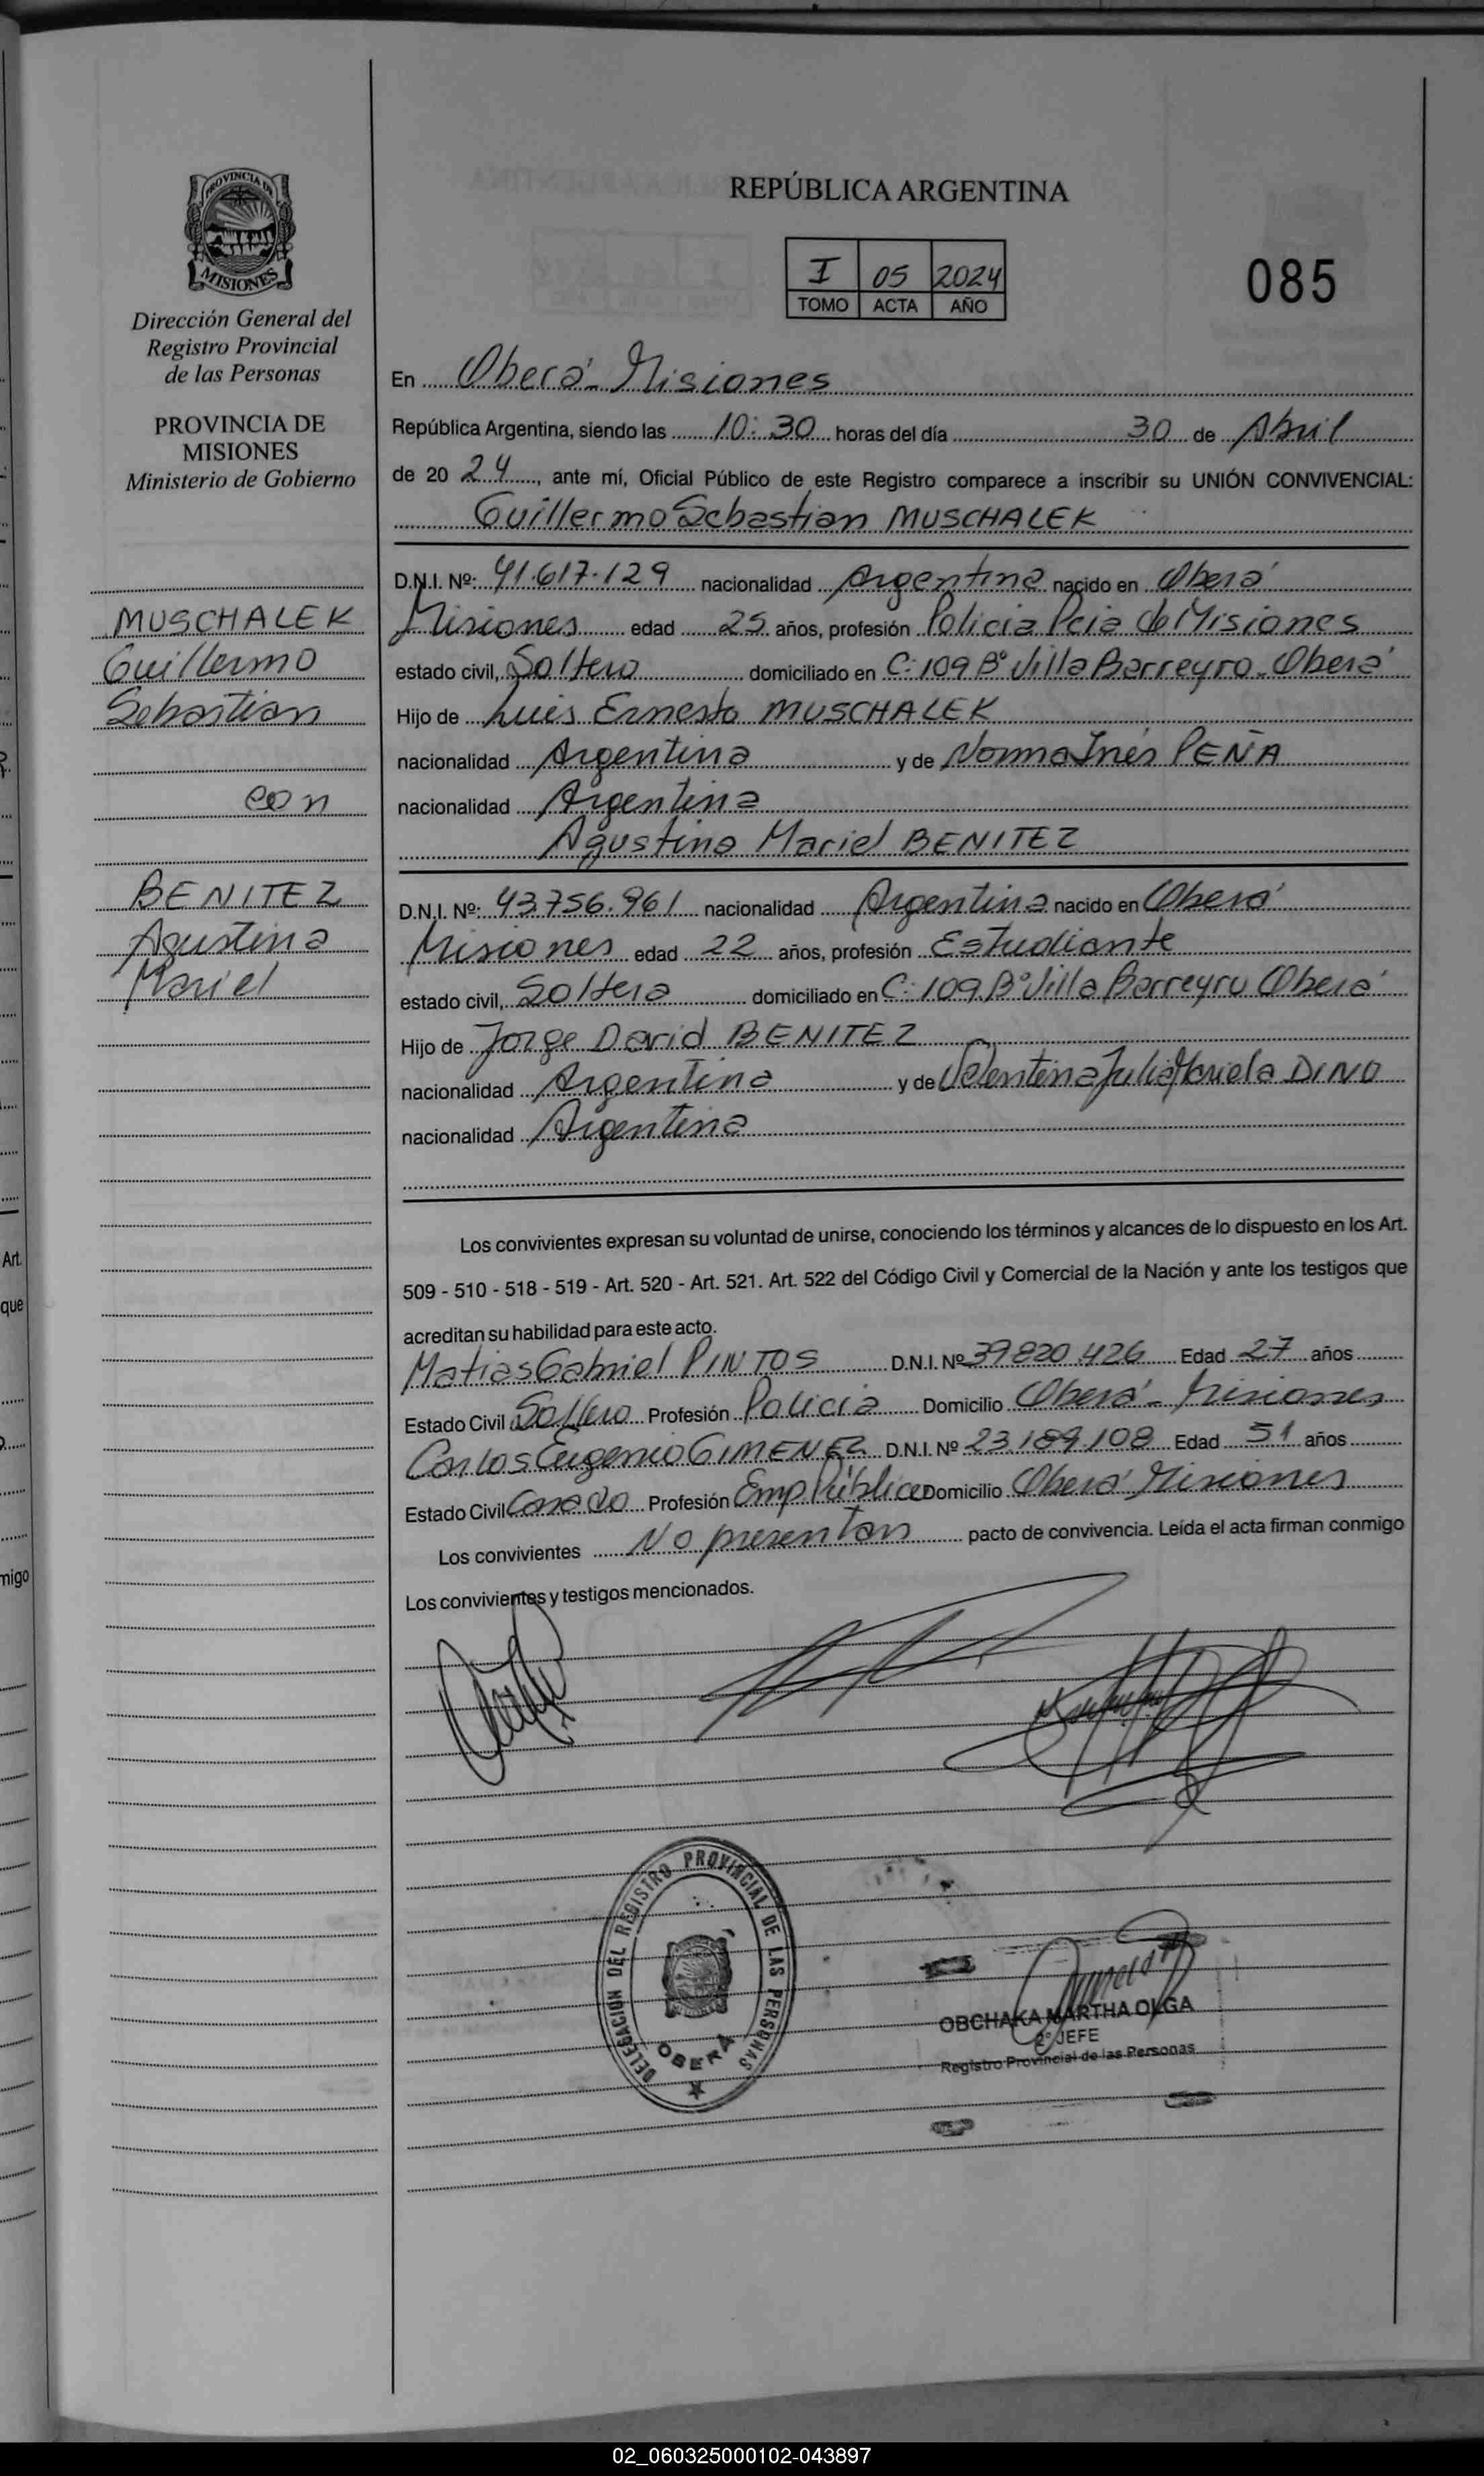 PROVINCIA DE
MISIONES
Dirección General del
Registro Provincial
de las Personas
PROVINCIA DE
MISIONES
Ministerio de Gobierno
MUSCHALEK
Guillermo
Sebastian
con
BENITEZ
Agustina
Mariel
REPÚBLICA ARGENTINA
I 05 2024
TOMO ACTA AÑO
085
En Oberá - Misiones
República Argentina, siendo las 10:30 horas del día 30 de Abril
de 20 24, ante mí, Oficial Público de este Registro comparece a inscribir su UNIÓN CONVIVENCIAL:
Guillermo Sebastian MUSCHALEK
D.N.I. Nº: 41.617.129 nacionalidad Argentina nacido en Oberá
Misiones edad 25 años, profesión Policia Pcia de Misiones
estado civil, Soltero domiciliado en C: 109 Bº Villa Barreyro - Oberá
Hijo de Luis Ernesto MUSCHALEK
nacionalidad Argentina y de Norma Inés PEÑA
nacionalidad Argentina
Agustina Mariel BENITEZ
D.N.I. Nº: 43.756.961 nacionalidad Argentina nacido en Oberá
Misiones edad 22 años, profesión Estudiante
estado civil, Soltera domiciliado en C: 109 Bº Villa Barreyro Oberá
Hijo de Jorge David BENITEZ
nacionalidad Argentina y de Valentina Julia Mariela DINO
nacionalidad Argentina
Los convivientes expresan su voluntad de unirse, conociendo los términos y alcances de lo dispuesto en los Art.
509 - 510 - 518 - 519 - Art. 520 - Art. 521. Art. 522 del Código Civil y Comercial de la Nación y ante los testigos que
acreditan su habilidad para este acto.
Matias Gabriel PINTOS D.N.I. Nº 39.820.426 Edad 27 años
Estado Civil Soltero Profesión Policia Domicilio Oberá - Misiones
Carlos Eugenio GIMENEZ D.N.I. Nº 23.189.108 Edad 51 años
Estado Civil Casado Profesión Emp. Público Domicilio Oberá Misiones
Los convivientes No presentan pacto de convivencia. Leída el acta firman conmigo
Los convivientes y testigos mencionados.
DELEGACION DEL REGISTRO PROVINCIAL DE LAS PERSONAS
OBERÁ
OBCHAKA MARTHA OLGA
2º JEFE
Registro Provincial de las Personas
Art.
que
migo
02_060325000102-043897